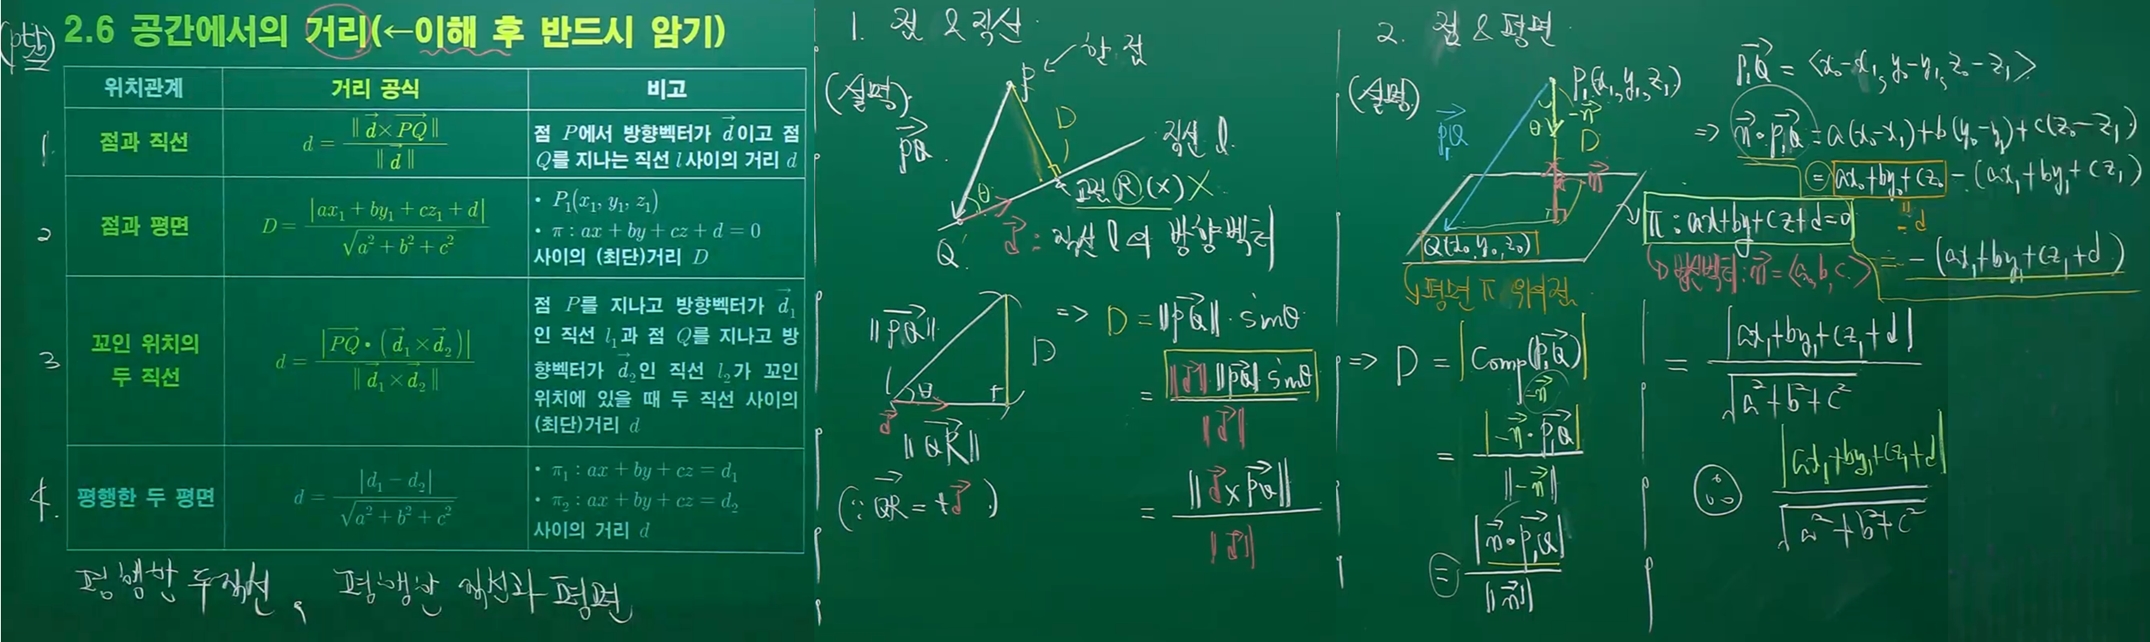 2.6 공간에서의 거리(←이해 후 반드시 암기)
위치관계 거리 공식 비고
1. 점과 직선 d = ‖d⃗×PQ⃗‖ / ‖d⃗‖ 점 P에서 방향벡터가 d⃗이고 점
Q를 지나는 직선 l사이의 거리 d
2 점과 평면 D = |ax₁+by₁+cz₁+d| / √(a²+b²+c²)
• P₁(x₁, y₁, z₁)
• π : ax+by+cz+d=0
사이의 (최단)거리 D
3 꼬인 위치의
두 직선
d = |PQ⃗•(d⃗₁×d⃗₂)| / ‖d⃗₁×d⃗₂‖
점 P를 지나고 방향벡터가 d⃗₁
인 직선 l₁과 점 Q를 지나고 방
향벡터가 d⃗₂인 직선 l₂가 꼬인
위치에 있을 때 두 직선 사이의
(최단)거리 d
4. 평행한 두 평면 d = |d₁−d₂| / √(a²+b²+c²)
• π₁ : ax+by+cz=d₁
• π₂ : ax+by+cz=d₂
사이의 거리 d
평행한 두직선, 평행한 직선과 평면
1. 점 & 직선
(설명)
한 점
P
PQ⃗
D
직선 l
θ
교점 R (x) X
Q
d⃗ : 직선 l의 방향벡터
‖PQ⃗‖
D
θ
d⃗
‖QR⃗‖
(∵ QR⃗ = td⃗)
⇒ D = ‖PQ⃗‖·sinθ
= ‖d⃗‖‖PQ⃗‖sinθ / ‖d⃗‖
= ‖d⃗×PQ⃗‖ / ‖d⃗‖
2. 점 & 평면
(설명)
P₁(x₁, y₁, z₁)
P₁Q⃗
θ
-n⃗
D
n⃗
Q(x₀, y₀, z₀)
평면 π 위의 점
π : ax+by+cz+d=0
법선벡터 : n⃗ = <a, b, c>
P₁Q⃗ = <x₀-x₁, y₀-y₁, z₀-z₁>
⇒ n⃗·P₁Q⃗ = a(x₀-x₁)+b(y₀-y₁)+c(z₀-z₁)
= ax₀+by₀+cz₀ - (ax₁+by₁+cz₁)
-d
= -(ax₁+by₁+cz₁+d)
⇒ D = |Comp-n⃗(P₁Q⃗)|
= |-n⃗·P₁Q⃗| / ‖-n⃗‖
= |n⃗·P₁Q⃗| / ‖n⃗‖
= |ax₁+by₁+cz₁+d| / √(a²+b²+c²)
|ax₁+by₁+cz₁+d| / √(a²+b²+c²)